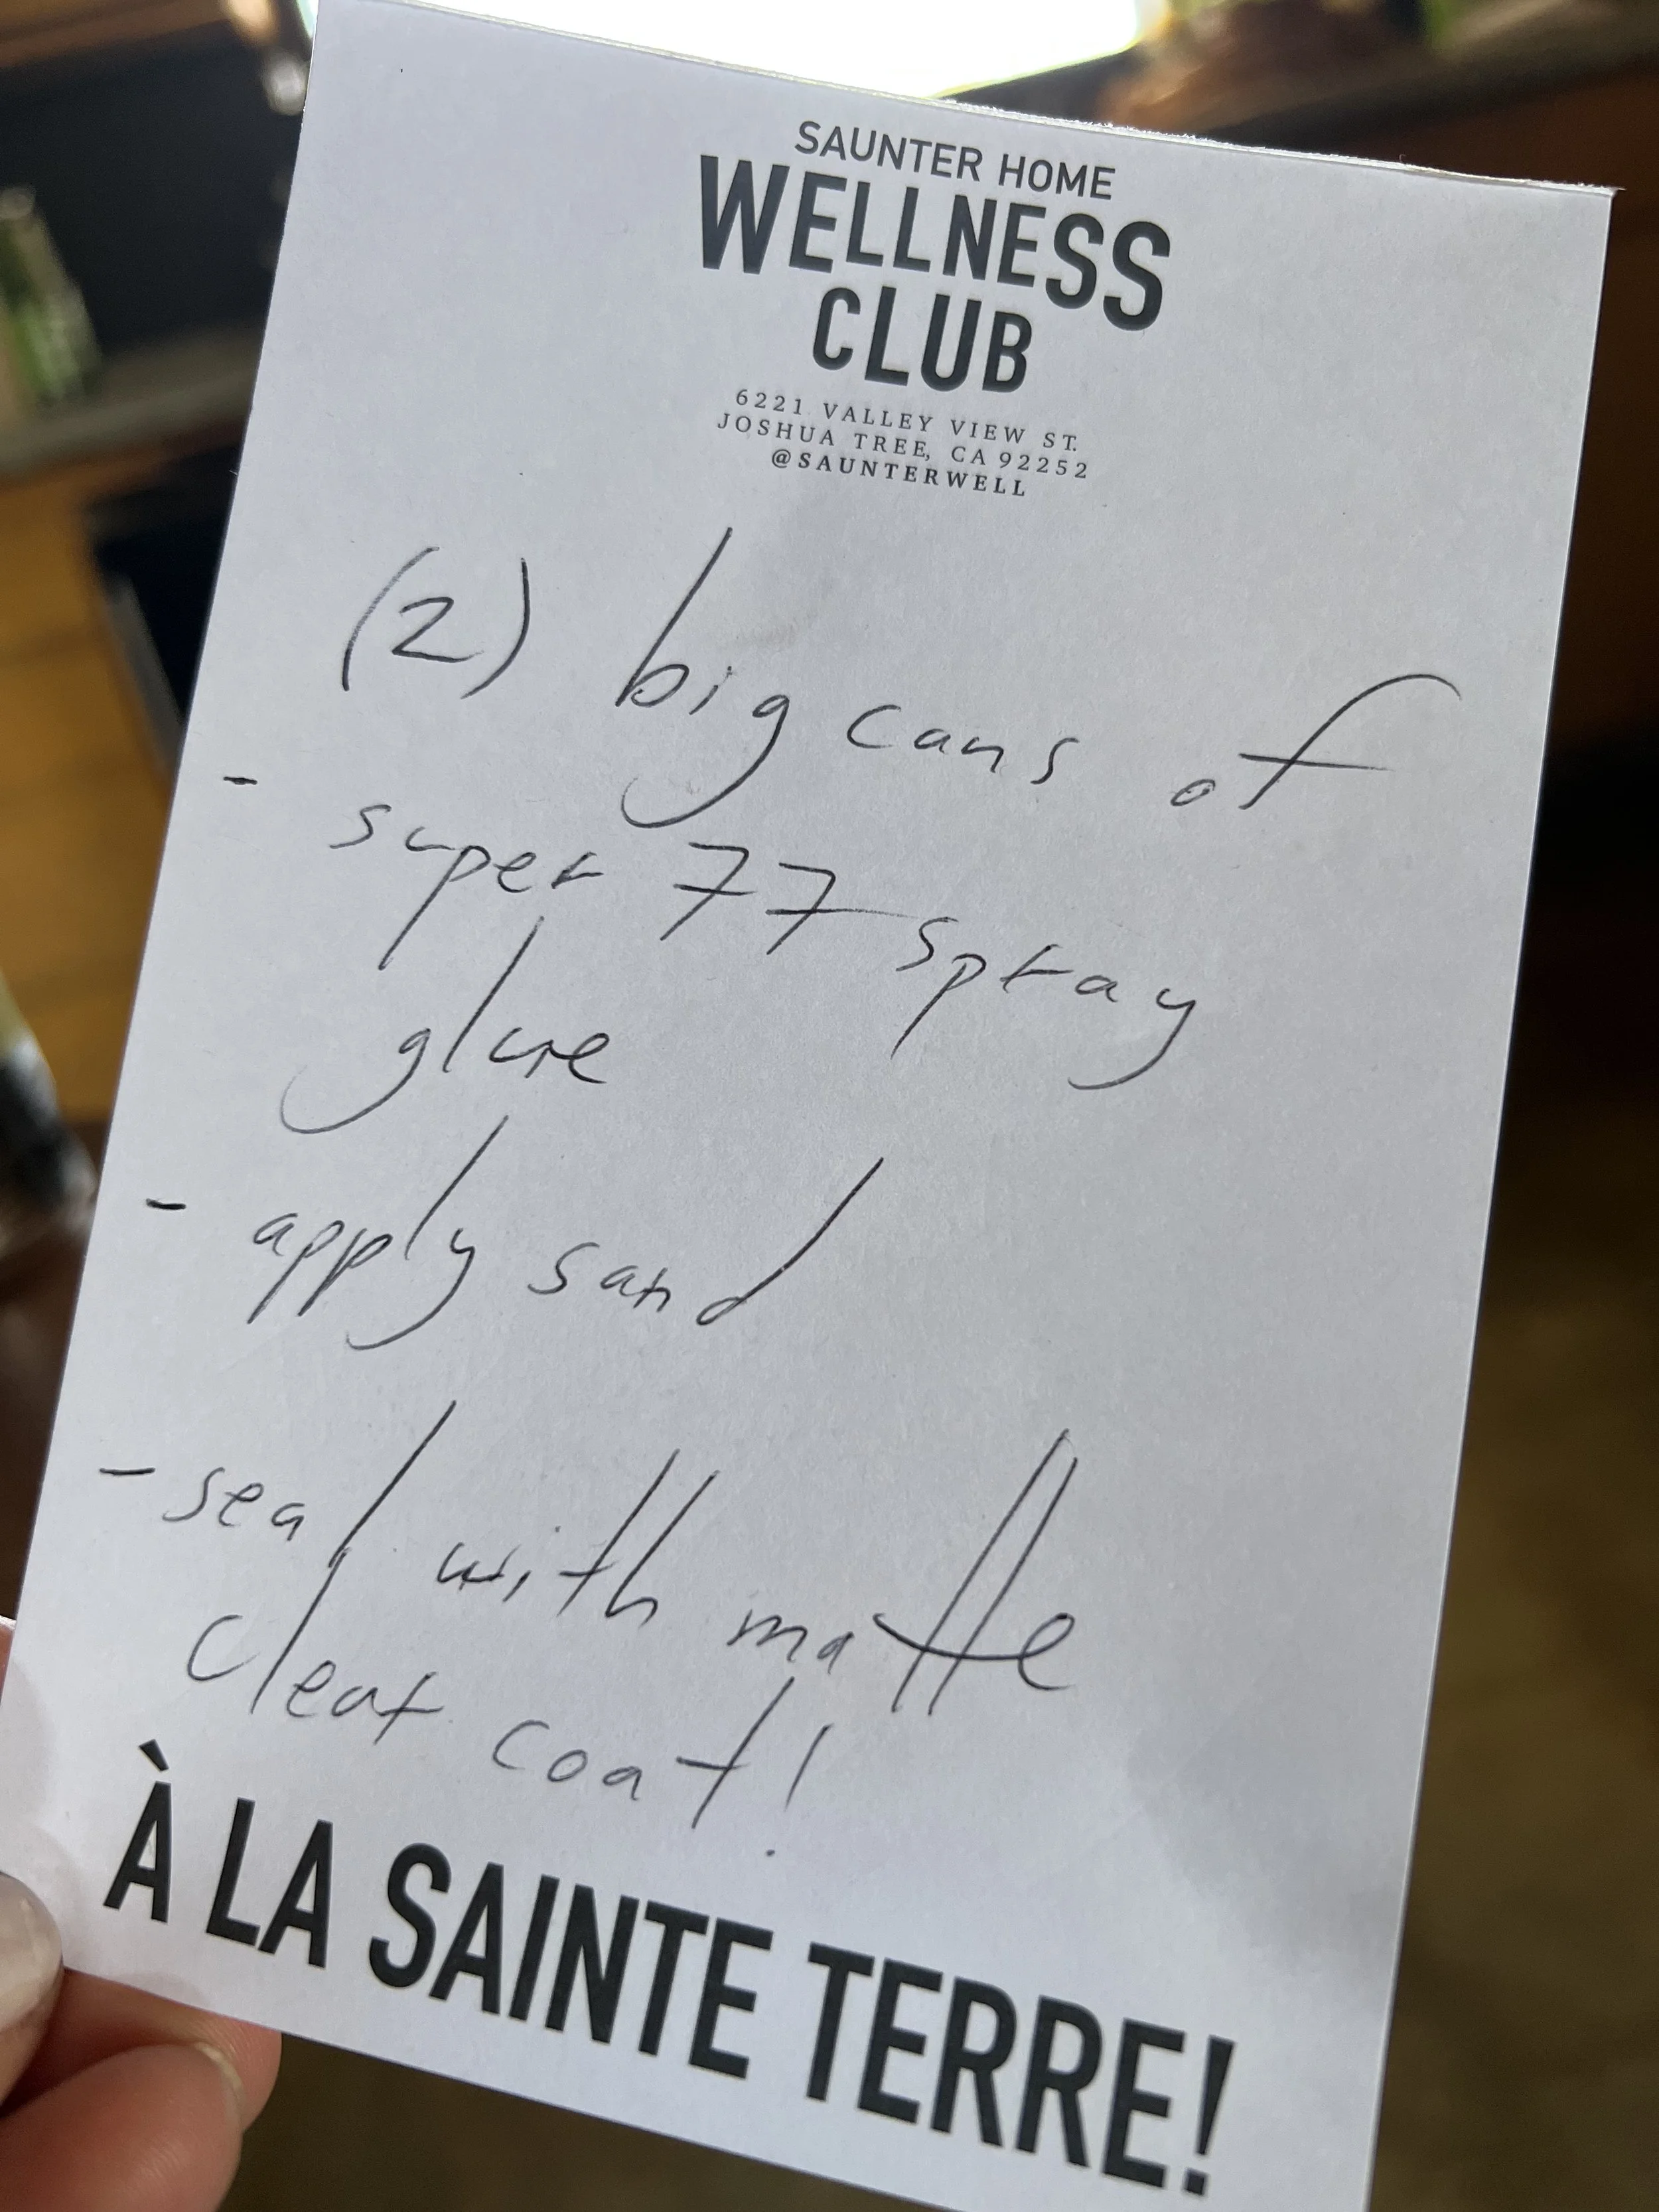 SAUNTER HOME
WELLNESS
CLUB
6221 VALLEY VIEW ST.
JOSHUA TREE, CA 92252
@SAUNTERWELL
(2) big cans of
- super 77 spray
glue
- apply sand
- seal with matte
clear coat!
À LA SAINTE TERRE!